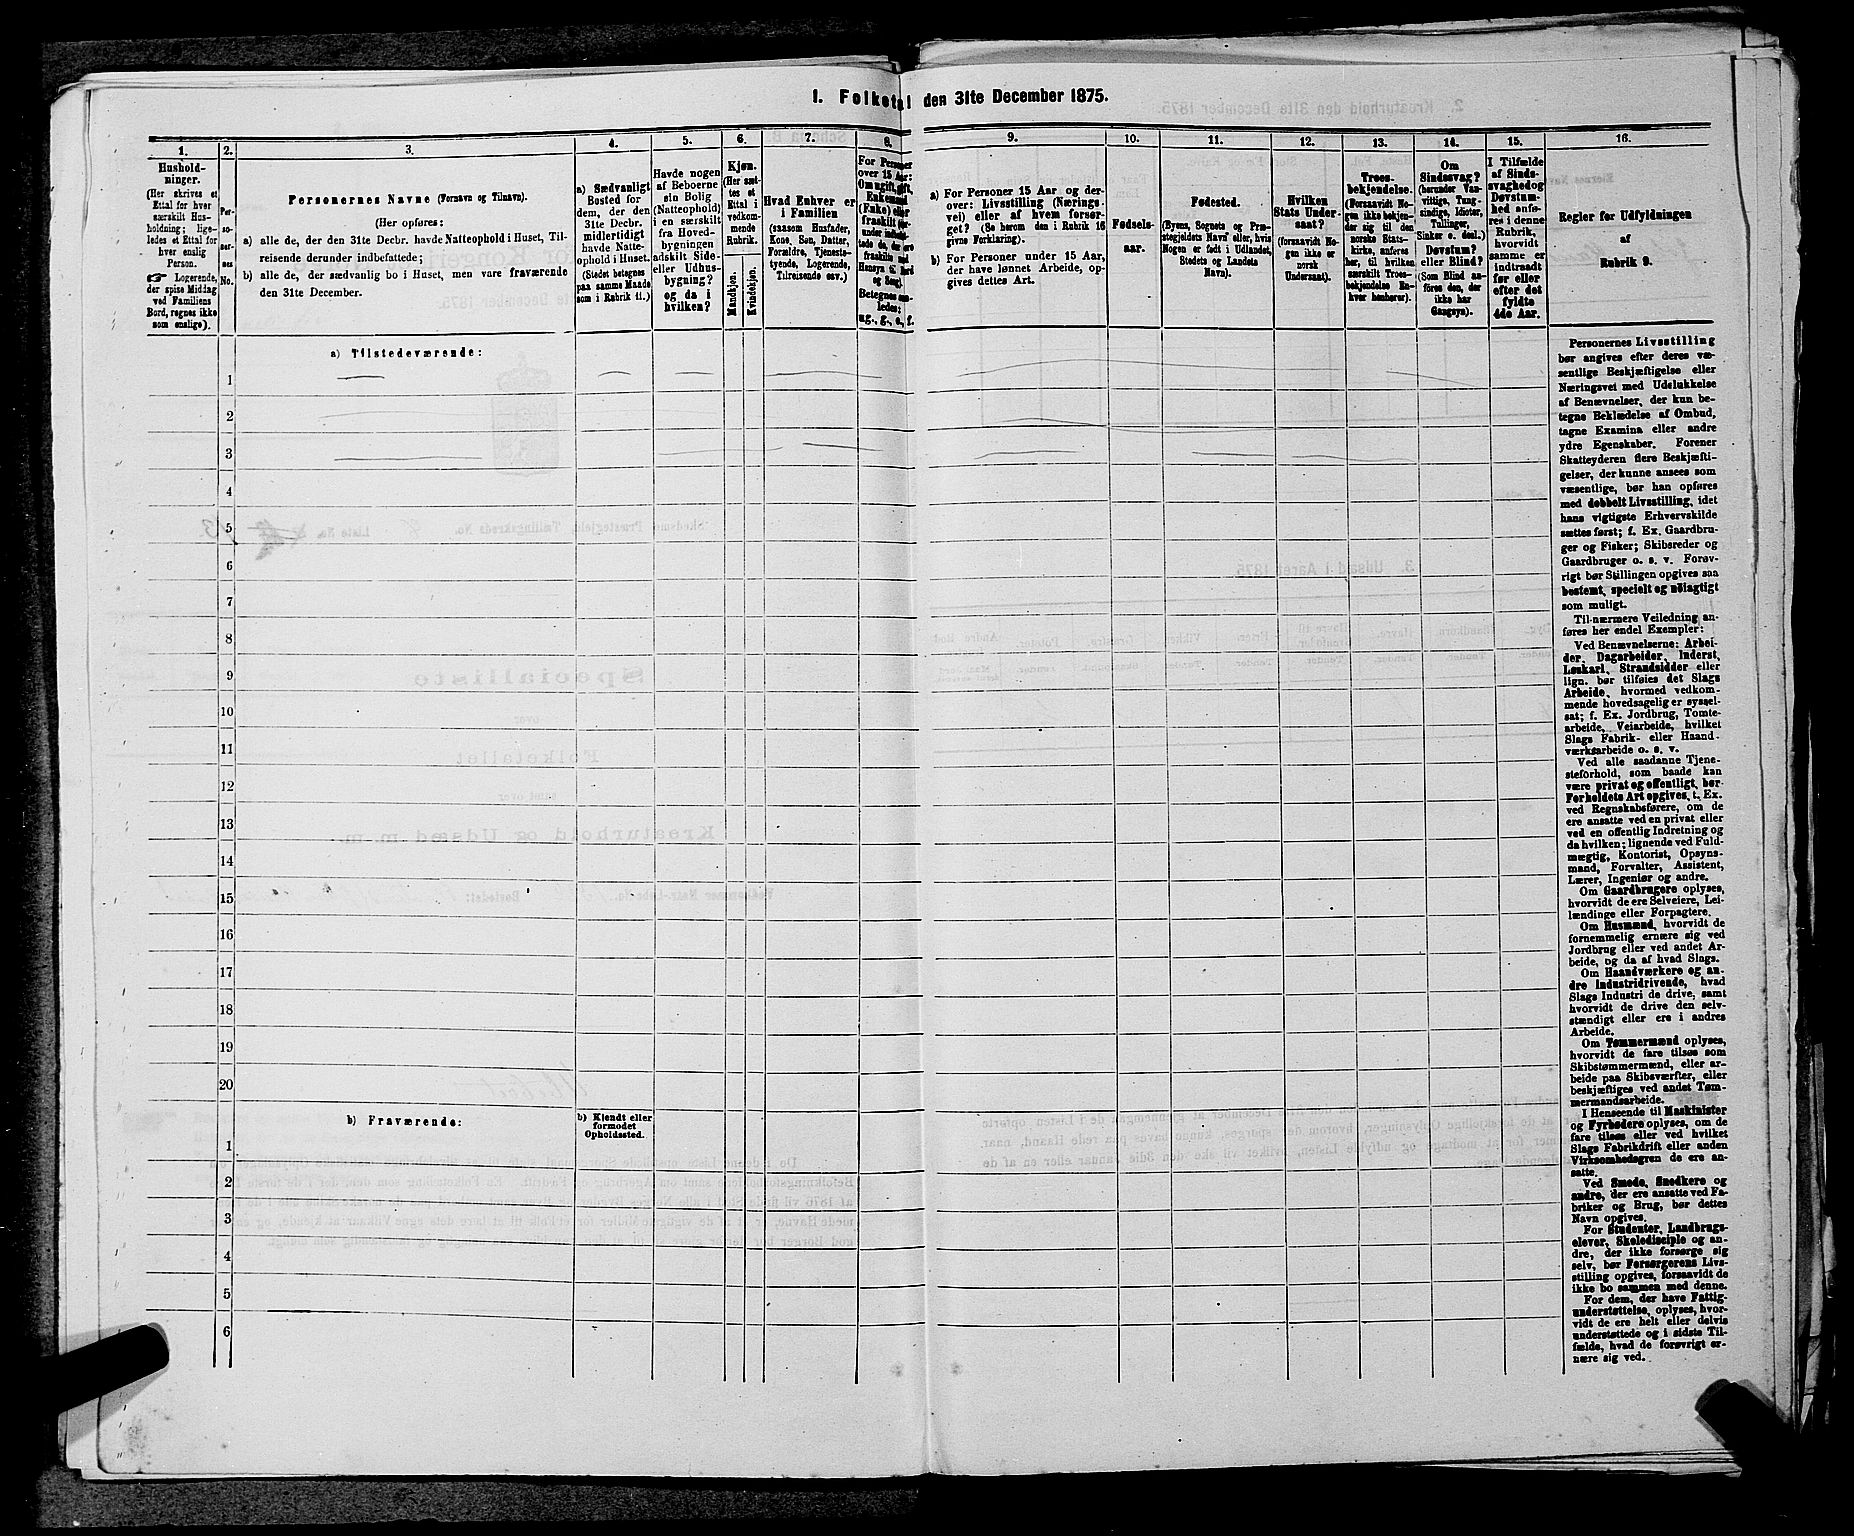 1. Folketal den 31te December 1875.
1.
Hushold-
ninger.
(Her skrives et
Ettal for hver
særskilt Hus-
holdning; lige-
ledes et Ettal for
hver enslig
Person.
☞ Logerende,
der spise Middag
ved Familiens
Bord, regnes ikke
som enslige).
2.
Per-
so-
ner-
nes
No.
3.
Personernes Navne (Fornavn og Tilnavn).
(Her opføres:
a) alle de, der den 31te Decbr. havde Natteophold i Huset, Til-
reisende derunder indbefattede;
b) alle de, der sædvanlig bo i Huset, men vare fraværende
den 31te December.
4.
a) Sædvanligt
Bosted for
dem, der den
31te Decbr.
midlertidigt
havde Natte-
ophold i Huset.
(Stedet betegnes
paa samme Maade
som i Rubrik 11.)
5.
Havde nogen
af Beboerne
sin Bolig
(Natteophold)
i en særskilt
fra Hoved-
bygningen
adskilt Side-
eller Udhus-
bygning?
og da i
hvilken?
6.
Kjøn.
(Her sæt-
tes et
Ettal i
vedkom-
mende
Rubrik.
Mandkjøn.
Kvindekjøn.
7.
Hvad Enhver er
i Familien
(saasom Husfader,
Kone, Søn, Datter,
Forældre, Tjeneste-
tyende, Logerende,
Tilreisende osv.)
8.
For Personer
over 15 Aar:
Om ugift, gift,
Enkemand
(Enke) eller
fraskilt;
Betegnes saa-
ledes:
ug., g., e., f.
9.
a) For Personer 15 Aar og der-
over: Livsstilling (Nærings-
vei) eller af hvem forsør-
get? (Se herom den i Rubrik 16
givne Forklaring).
b) For Personer under 15 Aar,
der have lønnet Arbeide, op-
gives dettes Art.
10.
Fødsels-
aar.
11.
Fødested.
(Byens, Sognets og Præ-
stegjeldets Navn eller, hvis
Nogen er født i Udlandet,
Stedets og Landets
Navn).
12.
Hvilken
Stats Under-
saat?
(forsaavidt No-
gen ikke er
norsk
Undersaat).
13.
Troes-
bekjendelse.
(Forsaavidt No-
gen ikke bekjen-
der sig til den
norske Stats-
kirke, anføres
her, til hvilken
særskilt Troes-
bekjendelse En-
hver henhører).
14.
Om
Sindssvag?
(herunder Van-
vittige, Tung-
sindige, Idioter,
Tullinger,
Sinker o. desl.)
Døvstum?
eller Blind?
(Som Blind an-
føres den, der
ikke har
Gangsyn).
15.
I Tilfælde
af Sinds-
svaghed og
Døvstum-
hed anfø-
res i denne
Rubrik,
hvorvidt
samme er
indtraadt
før eller
efter det
fyldte
4de Aar.
16.
Regler for Udfyldningen
af
Rubrik 9.
a) Tilstedeværende:
1
2
3
4
5
6
7
8
9
10
11
12
13
14
15
16
17
18
19
20
b) Fraværende:
b) Kjendt eller
formodet
Opholdssted.
1
2
3
4
5
6
Personernes Livsstilling
bør angives efter deres væ-
sentlige Beskjæftigelse eller
Næringsvei med Udelukkelse
af Benævnelser, der kun be-
tegne Beklædelse af Ombud,
tagne Examina eller andre
ydre Egenskaber. Forener
Skatteyderen flere Beskjæfti-
gelser, der kunne ansees som
væsentlige, bør han opføres
med dobbelt Livsstilling, idet
hans vigtigste Erhvervskilde
sættes først; f. Ex. Gaardbru-
ger og Fisker; Skibsreder og
Gaardbruger o. s. v. Forøv-
rigt bør Stillingen opgives saa
bestemt, specielt og nøiagtigt
som muligt.
Til nærmere Veiledning an-
føres her endel Exempler:
Ved Benævnelserne: Arbei-
der, Dagarbeider, Inderst,
Løskarl, Strandsidder eller
lign. bør tilføies det Slags
Arbeide, hvormed vedkom-
mende hovedsagelig er syssel-
sat; f. Ex. Jordbrug, Tomte-
arbeide, Veiarbeide, hvilket
Slags Fabrik- eller Haand-
værksarbeide o. s. v.
Ved alle saadanne Tjene-
steforhold, som baade kan
være privat og offentligt, bør
Forholdets Art opgives, t. Ex.
ved Regnskabsførere, om de
ere ansatte ved en privat eller
ved en offentlig Indretning og
da hvilken; lignende ved Fuld-
mægtig, Kontorist, Opsyns-
mand, Forvalter, Assistent,
Lærer, Ingeniør og andre.
Om Gaardbrugere oplyses,
hvorvidt de ere Selveiere, Lei-
lændinge eller Forpagtere.
Om Husmænd, hvorvidt de
fornemmelig ernære sig ved
Jordbrug eller ved andet Ar-
beide, og da af hvad Slags.
Om Haandværkere og an-
dre Industridrivende, hvad
Slags Industri de drive, samt
hvorvidt de drive den selv-
stændigt eller ere i andres
Arbeide.
Om Tømmermænd oplyses,
hvorvidt de fare tilsøs som
Skibstømmermænd, eller ar-
beide paa Skibsværfter, eller
beskjæftiges ved andet Tøm-
mermandsarbeide.
I Henseende til Maskinister
og Fyrbødere oplyses, om de
fare tilsøs eller ved hvilket
Slags Fabrikdrift eller anden
Virksomhedsgren de ere an-
satte.
Ved Smede, Snedkere og
andre, der ere ansatte ved Fa-
briker og Brug, bør dettes
Navn opgives.
For Studenter, Landbrugs-
elever, Skoledisciple og an-
dre, der ikke forsørge sig
selv, bør Forsørgerens Livs-
stilling opgives, forsaavidt de
ikke bo sammen med denne.
For dem, der have Fattig-
understøttelse, oplyses, hvor-
vidt de ere helt eller delvis
understøttede og i sidste Til-
fælde, hvad de forøvrigt er-
nære sig ved.